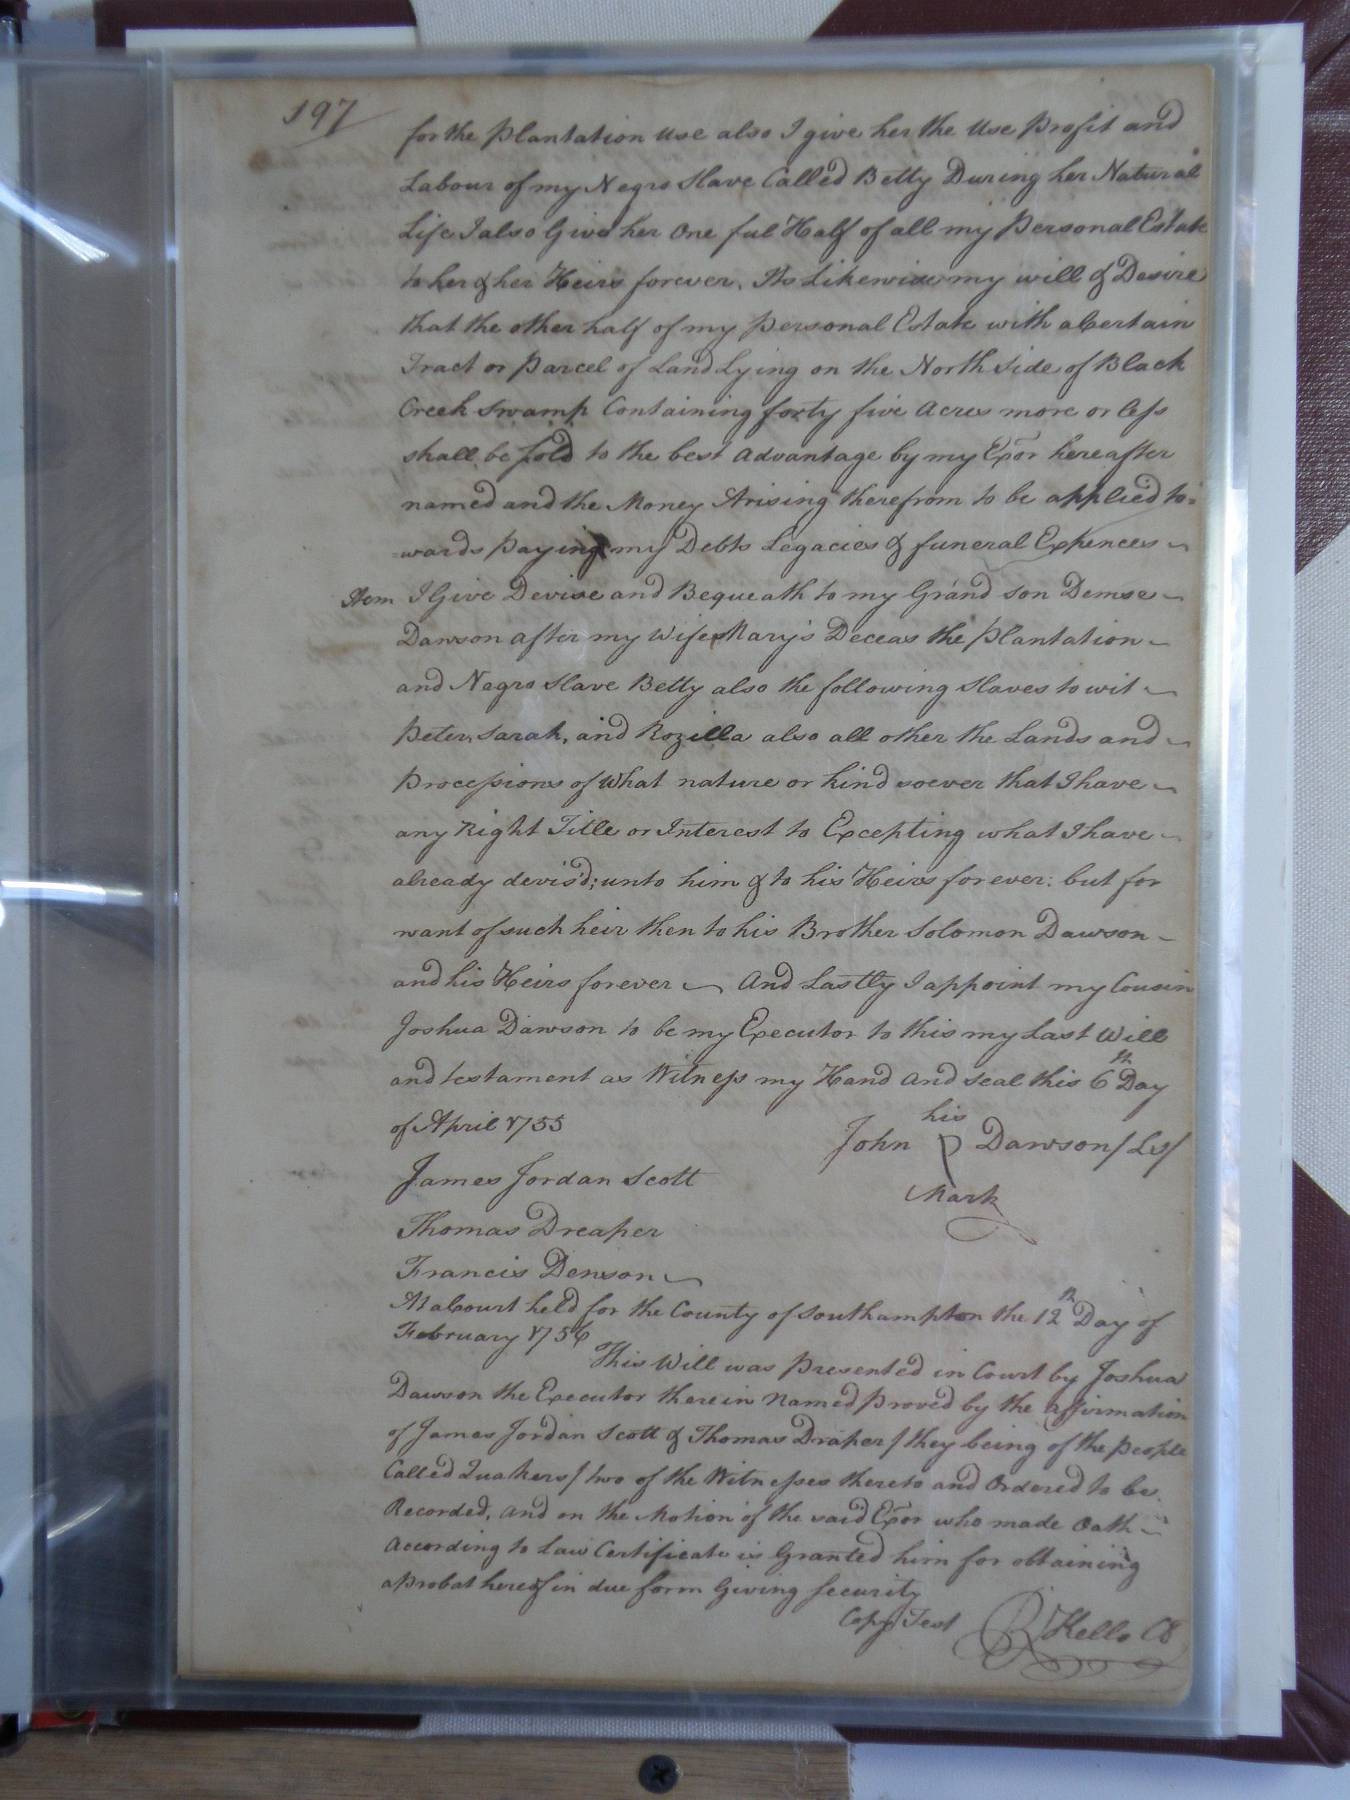 197
for the Plantation use also I give her the Use Profit and
Labour of my Negro Slave Called Betty During her Natural
Life I also Give her One ful Half of all my Personal Estate
to her & her Heirs forever. Its Likewise my will & Desire
that the other half of my Personal Estate with a Certain
Tract or Parcel of Land Lying on the North Side of Black
Creek Swamp Containing forty five Acres more or less
shall be sold to the best Advantage by my Exor hereafter
named and the Money Arising therefrom to be applied to=
=wards Paying my Debts Legacies & funeral Expences
Item I Give Devise and Bequeath to my Grand son Demse
Dawson after my Wife Mary's Deceas the Plantation
and Negro Slave Betty also the following Slaves to wit
Peter, Sarah, and Rozilla also all other the Lands and
Processions of what nature or kind soever that I have
any Right Title or Interest to Excepting what I have
already devis'd; unto him & to his Heirs forever: but for
want of such heir then to his Brother Solomon Dawson
and his Heirs forever And Lastly I appoint my Cousin
Joshua Dawson to be my Executor to this my Last Will
and testament as Witness my Hand and seal this 6th Day
of April 1755
his
John P Dawson /Ls/
Mark
James Jordan Scott
Thomas Dreaper
Francis Denson
At a Court held for the County of Southampton the 12th Day of
February 1756
This Will was Presented in Court by Joshua
Dawson the Executor therein Named Proved by the affirmation
of James Jordan Scott & Thomas Draper / they being of the People
Called Quakers / two of the Witnesses thereto and Ordered to be
Recorded, and on the Motion of the said Exor who made Oath
According to Law Certificate is Granted him for obtaining
a Probat hereof in due form Giving security
Copy Test R Kello CC